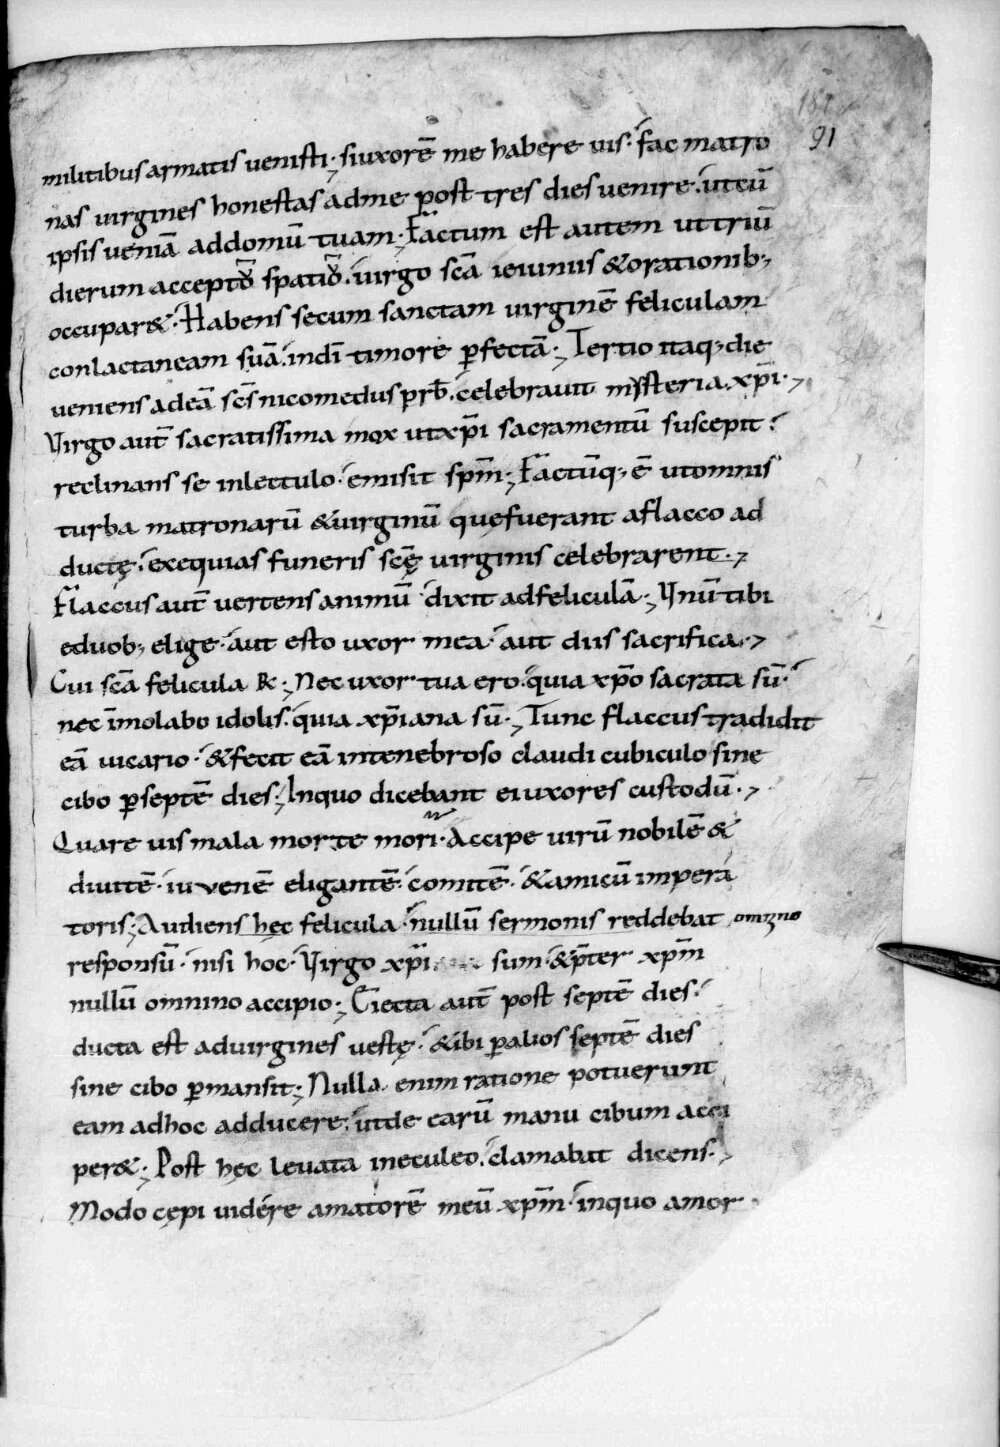 181
91
militibus armatis venisti; si uxorē me habere vis· fac matro
nas virgines honestas ad me post tres dies venire· ut cū
ipsis veniā ad domū tuam; Factum est autem ut triū
dierum accepto spatio· virgo scā ieiuniis & orationib;
occupar&· Habens secum sanctam virginē feliculam
conlactaneam suā· in dī timore ꝑfectā; Tertio itaq; die
veniens ad eā scs nicomedus prb̄· celebravit mysteria xp̄i·,
Virgo aut̄ sacratissima mox ut xp̄i sacramentū suscepit·
reclinans se in lectulo· emisit spm̄; Factūq; ē ut omnis
turba matronarū & virginū quę fuerant a flacco ad
ductę· exequias funeris scę virginis celebrarent·,
Flaccus aut̄ vertens animū dixit ad feliculā; Unū tibi
e duob; elige· aut esto uxor mea· aut diis sacrifica·,
Cui scā felicula R; Nec uxor tua ero· quia xp̄o sacrata sū·
nec īmolabo idolis· quia xp̄iana sū; Tunc flaccus tradidit
eā vicario· & fecit eā in tenebroso claudi cubiculo sine
cibo ꝑ septē dies; In quo dicebant ei uxores custodū·,
Quare vis mala morte mori· Accipe virū nobilē &
divitē· iuvenē eligantē· comitē· & amicū impera
toris; Audiens hęc felicula· nullū sermonis reddebat omnino
responsū· nisi hoc· Virgo xp̄i sum· & p̄ter xp̄m
nullū omnino accipio; Eiecta aut̄ post septē dies·
ducta est ad virgines vestę· & ibi ꝑ alios septē dies
sine cibo ꝑmansit; Nulla enim ratione potuerunt
eam ad hoc adducere· ut de earū manu cibum acci
per&; Post hęc levata in eculeo· clamabat dicens·,
Modo cępi vidére amatorē meū xp̄m· in quo amor